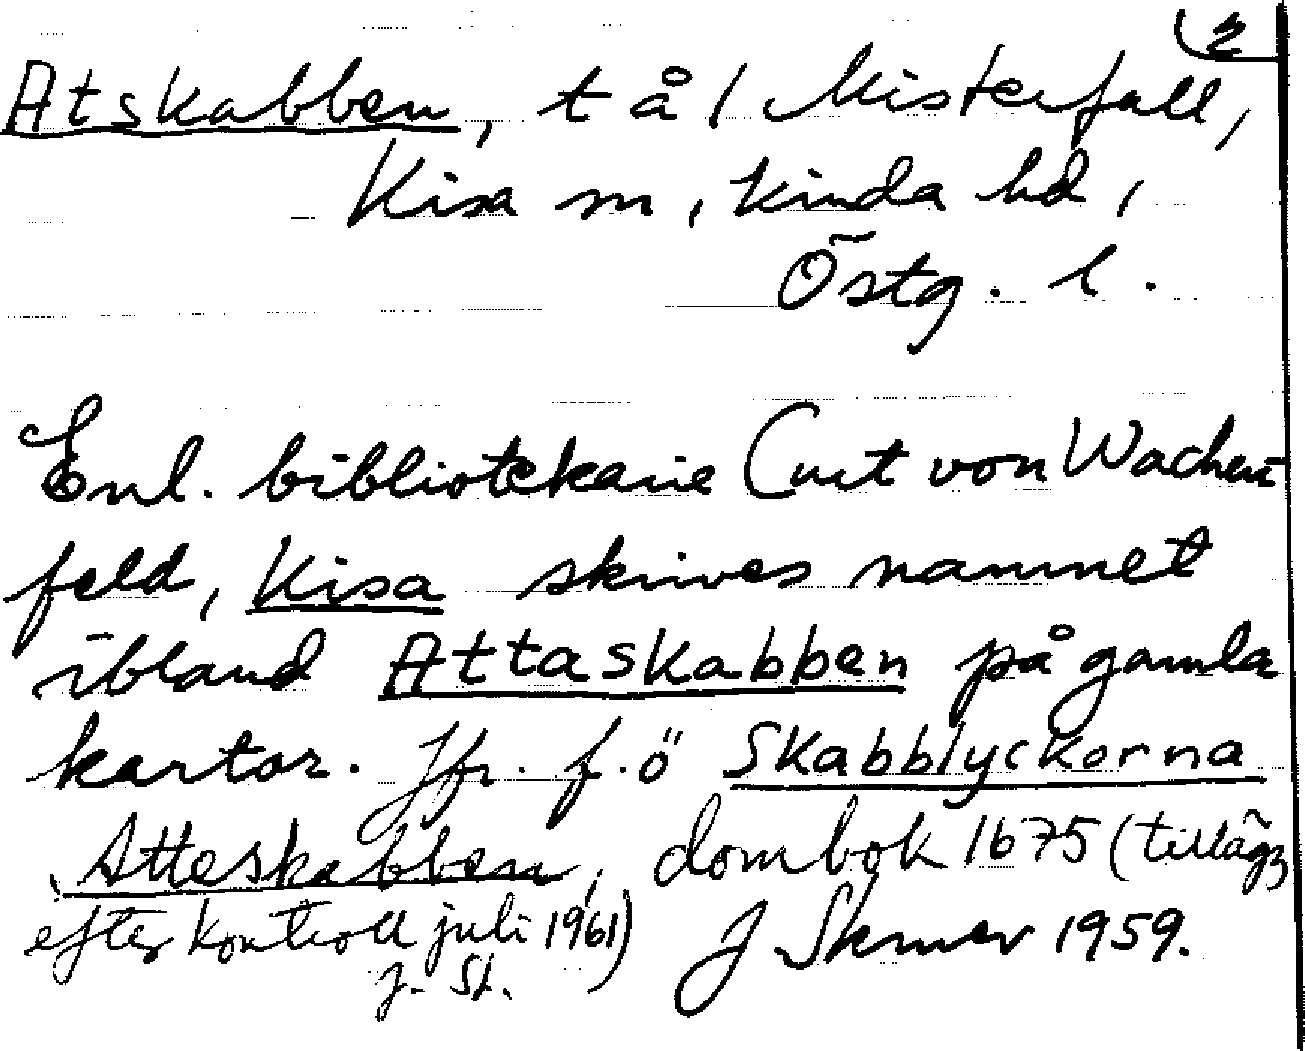 2
Atskabben, t å / Misterfall,
Kisa sn, Kinda hd,
Östg. l.
Enl. bibliotekarie Curt von Wachen-
feld, Kisa skrives namnet
ibland Attaskabben på gamla
kartor. Jfr. f.ö Skabblyckorna
Atteskabben, dombok 1675 (tillägg
efter kontroll juli 1961) J. 1959.
J. Sk.